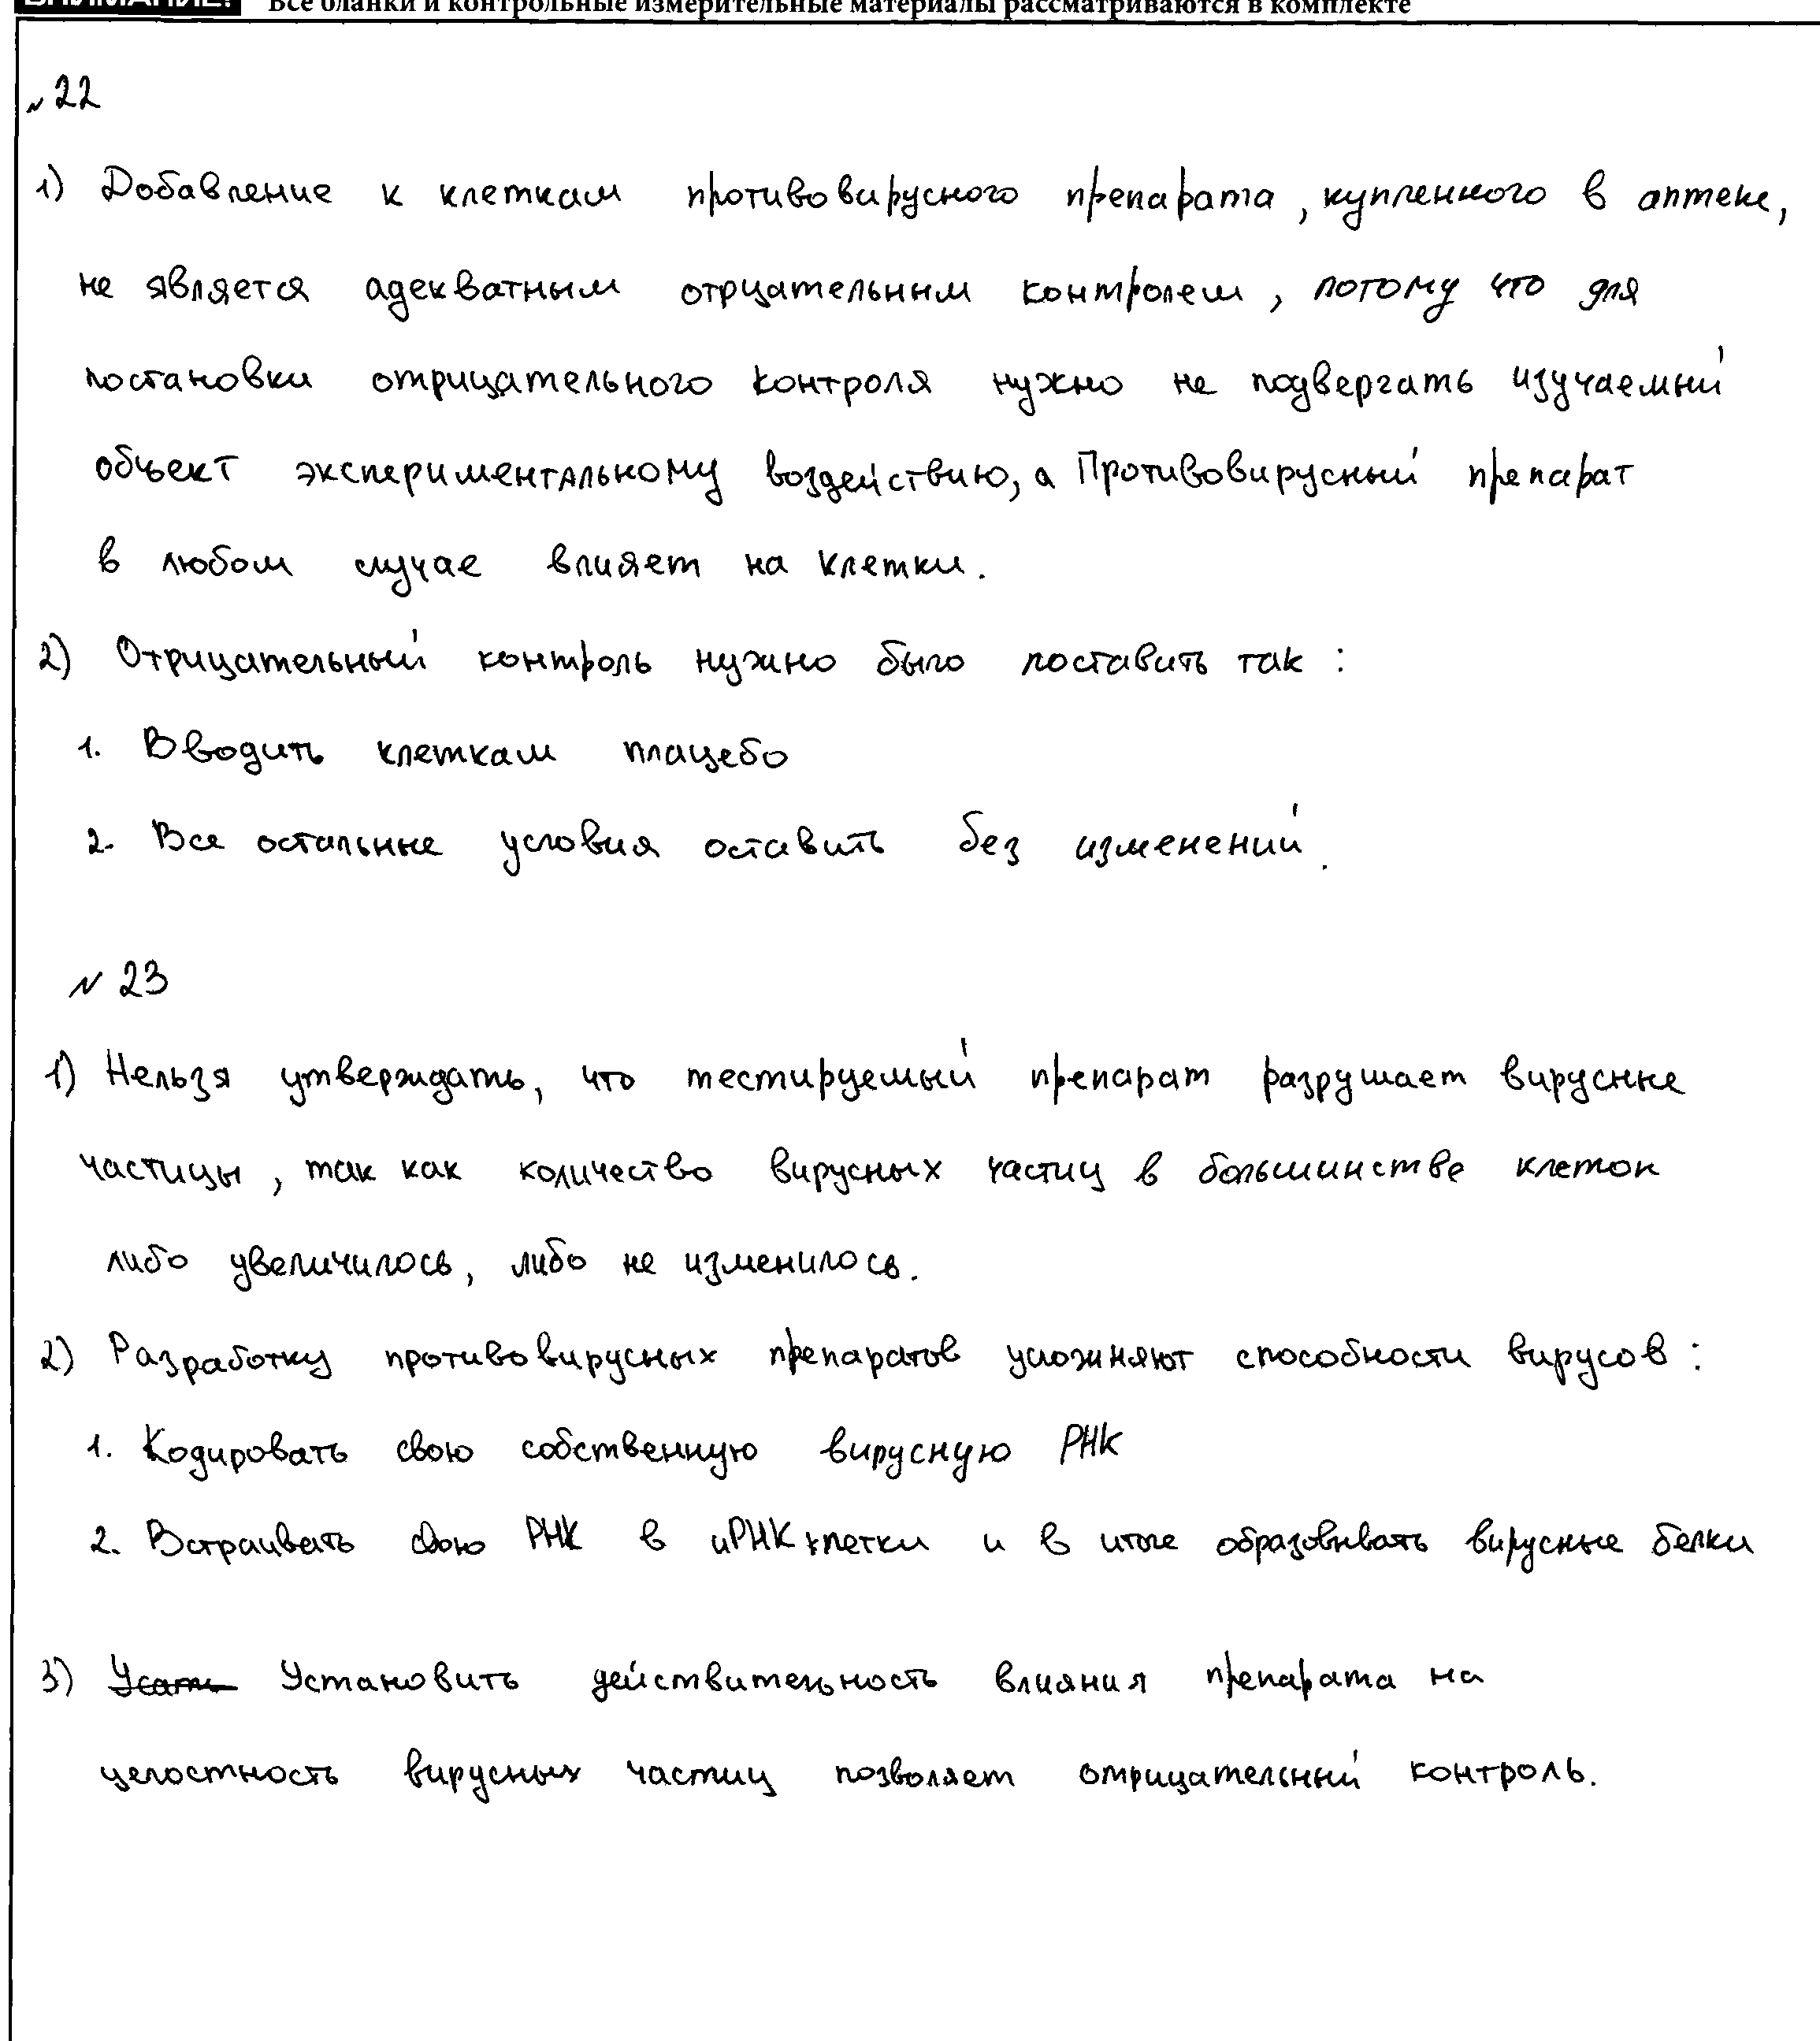 ВНИМАНИЕ! Все бланки и контрольные измерительные материалы рассматриваются в комплекте
№22
1) Добавление к клеткам противовирусного препарата, купленного в аптеке,
не является адекватным отрцательным контролем, потому что для
постановки отрицательного контроля нужно не подвергать изучаемый
объект экспериментальному воздействию, а Противовирусный препарат
в любом случае влияет на клетки.
2) Отрицательный контроль нужно было поставить так:
1. Вводить клеткам плацебо
2. Все остальные условия оставить без изменений.
№23
1) Нельзя утверждать, что тестируемый препарат разрушает вирусные
частицы, так как количество вирусных частиц в большинстве клеток
либо увеличилось, либо не изменилось.
2) Разработку противовирусных препаратов усложняют способности вирусов:
1. Кодировать свою собственную вирусную РНК
2. Встраивать свою РНК в иРНК клетки и в итоге образовывать вирусные белки
3) Установить действительность влияния препарата на
целостность вирусных частиц позволяет отрицательный контроль.